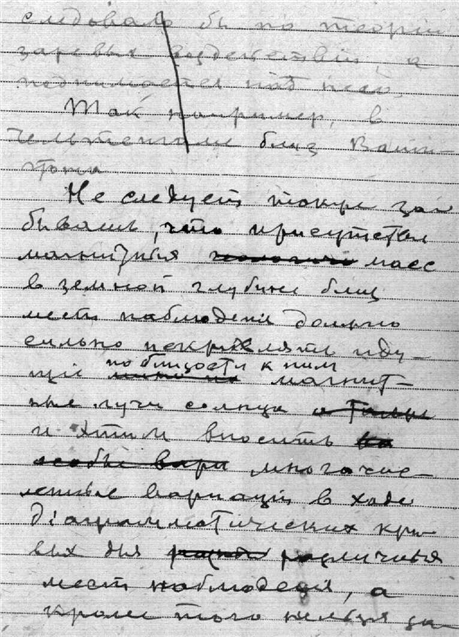 следовало бы по теории
заревых воздействий, а
поднимается над нею.
Так например, в
Чельтенгиме близ Вашин-
гтона
Не следует также за-
бывать, что присутствие
магнитных масс
в земной глубине близ
мест наблюдения должно
сильно искривлять иду-
щие поблизости к ним магнит-
ные лучи солнца и Галак
и этим вносить на
особые вари многочис-
ленные вариации в ходе
діаграмматических кри-
вых для различных
мест наблюдения, а
кроме того нельзя за-